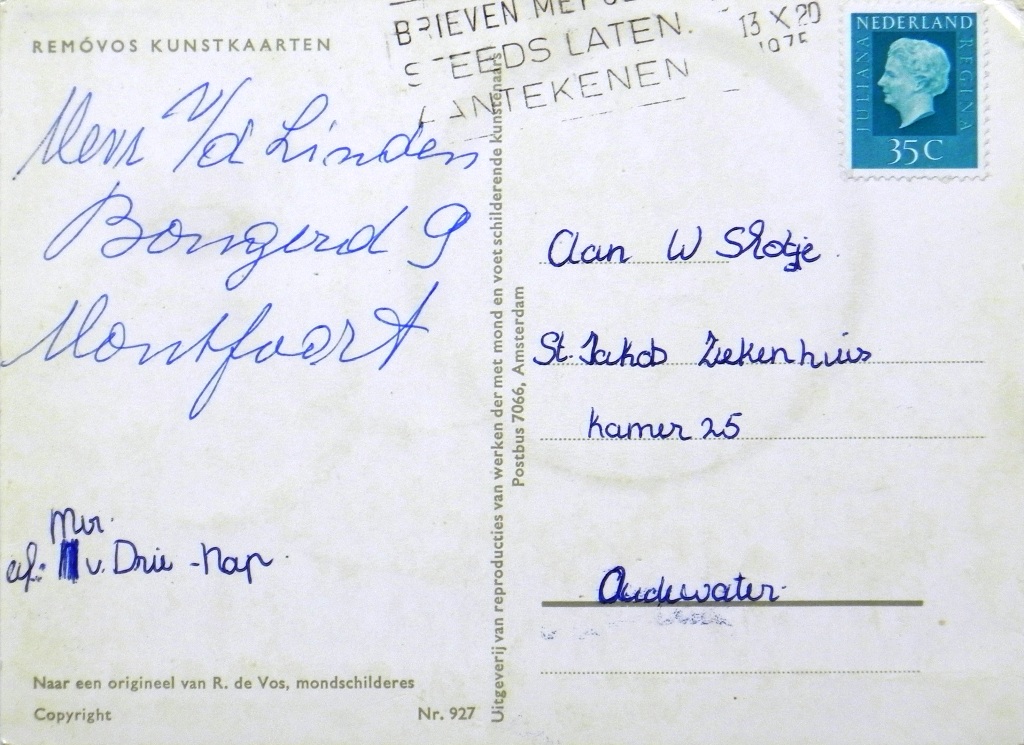 REMÓVOS KUNSTKAARTEN
BRIEVEN MET
STEEDS LATEN.
AANTEKENEN
13 X 20
1975
NEDERLAND
JULIANA
REGINA
35C
v/d Linden
Bongerd 9
Montfoort
Mr.
v. Drie - Nap.
Naar een origineel van R. de Vos, mondschilderes
Copyright
Nr. 927
Uitgeverij van reproducties van werken der met mond en voet schilderende kunstenaars
Postbus 7066, Amsterdam
Aan W Slotje
St. Jakob Ziekenhuis
kamer 25
Oudewater